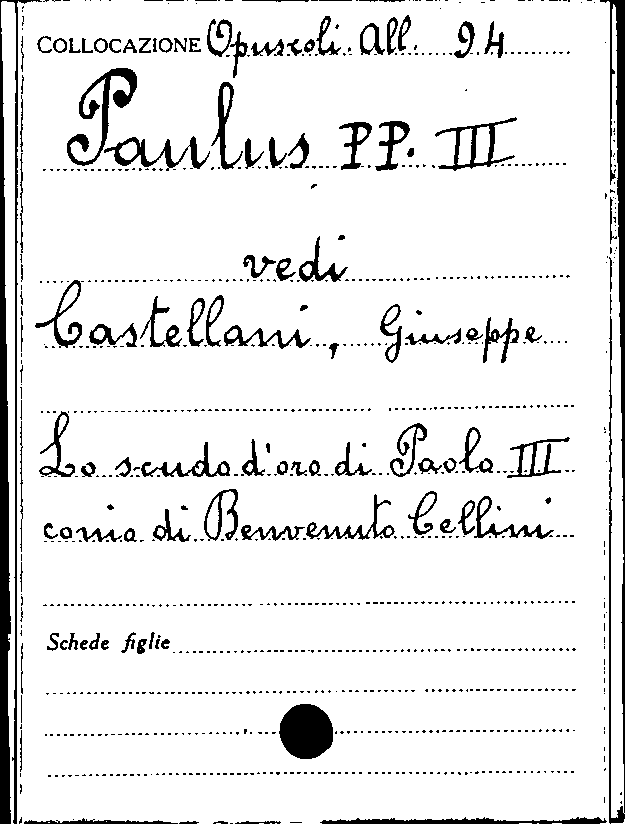 COLLOCAZIONE Opuscoli. All. 94
Paulus PP. III
vedi
Castellani, Giuseppe
Lo scudo d'oro di Paolo III
conio di Benvenuto Cellini
Schede figlie